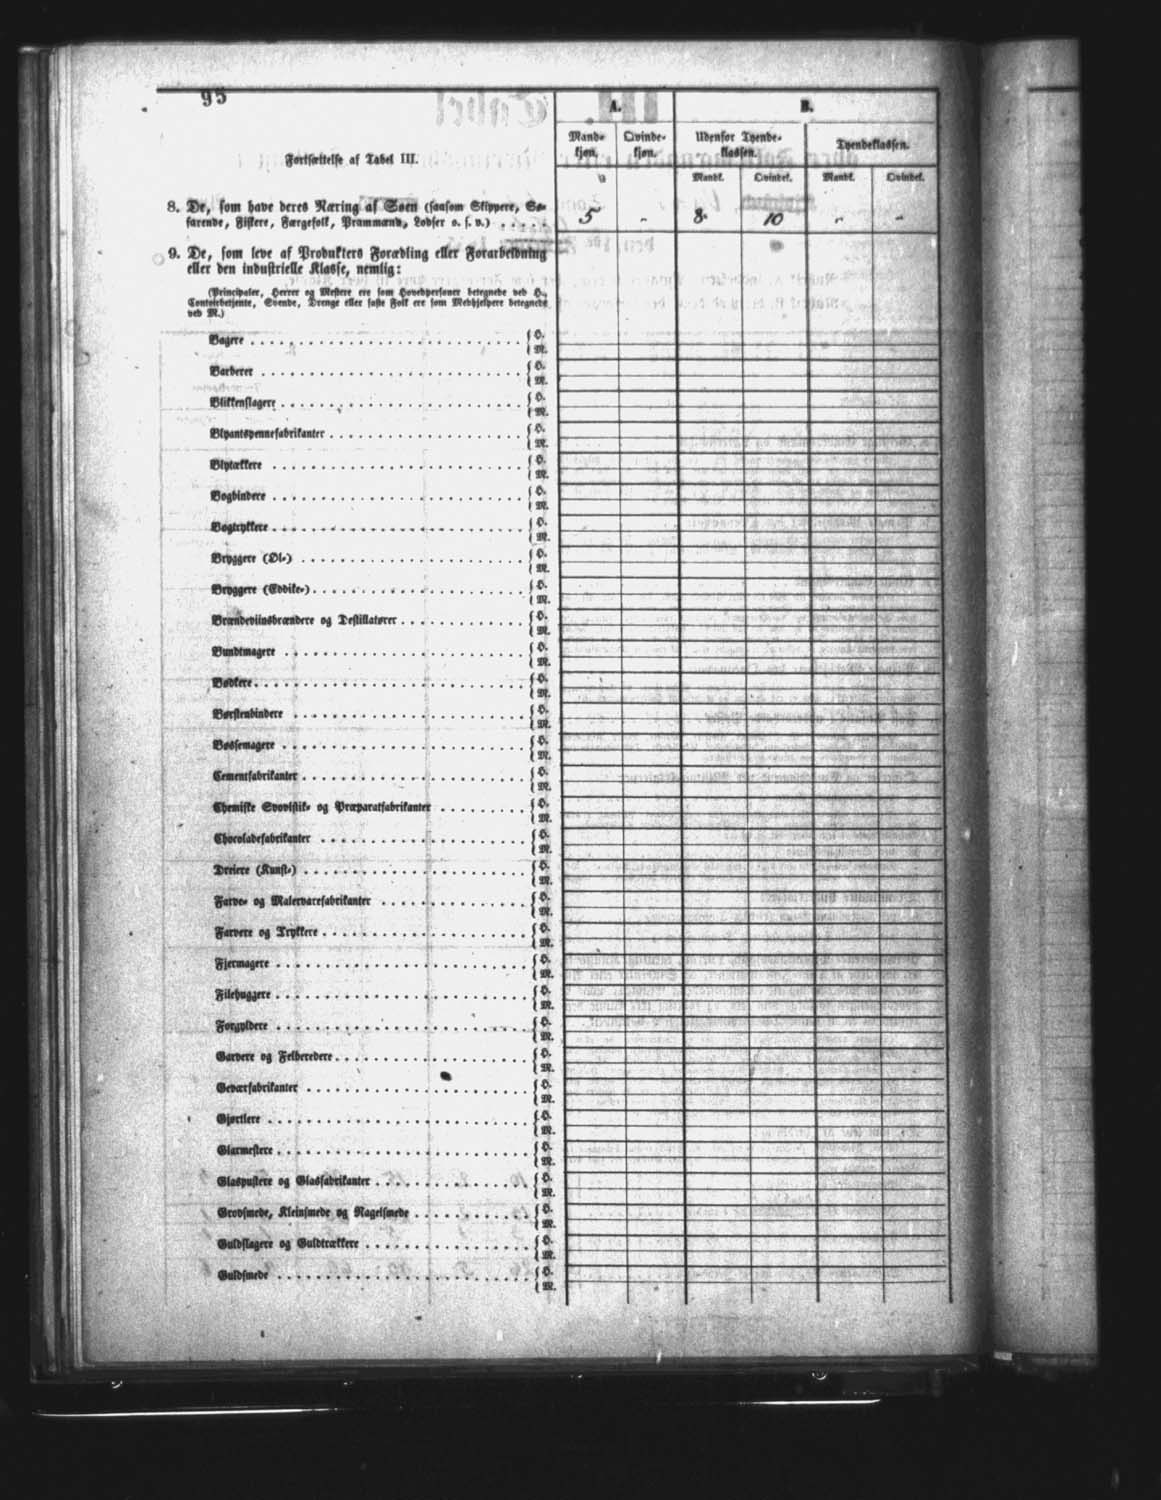 95
Fortsættelse af Tabel III.
A.
B.
Mand-
kjøn.
Qvinde-
kjøn.
Udenfor Tyende-
klassen.
Tyendeklassen.
Mandk.
Qvindek.
Mandk.
Qvindek.
8. De, som have deres Næring af Søen (saasom Skippere, Sø-
farende, Fiskere, Færgefolk, Prammænd, Lodser o. s. v.) . . . . . 5 " 8 10 " "
9. De, som leve af Produkters Forædling eller Forarbeidning
eller den industrielle Klasse, nemlig:
(Principaler, Herrer og Mestere ere som Hovedpersoner betegnede ved H.,
Contoirbetjente, Svende, Drenge eller faste Folk ere som Medhjelpere betegnede
ved M.)
Bagere { H.
{ M.
Barberer { H.
{ M.
Blikkenslagere { H.
{ M.
Blyantspennefabrikanter { H.
{ M.
Blytækkere { H.
{ M.
Bogbindere { H.
{ M.
Bogtrykkere { H.
{ M.
Bryggere (Øl-) { H.
{ M.
Bryggere (Eddike-) { H.
{ M.
Brændeviinsbrændere og Destillatører { H.
{ M.
Bundtmagere { H.
{ M.
Bødkere { H.
{ M.
Børstenbindere { H.
{ M.
Bøssemagere { H.
{ M.
Cementfabrikanter { H.
{ M.
Chemiske Svovlstik- og Præparatfabrikanter { H.
{ M.
Chocoladefabrikanter { H.
{ M.
Dreiere (Kunst-) { H.
{ M.
Farve- og Malervarefabrikanter { H.
{ M.
Farvere og Trykkere { H.
{ M.
Fjermagere { H.
{ M.
Filehuggere { H.
{ M.
Forgyldere { H.
{ M.
Garvere og Felberedere { H.
{ M.
Geværfabrikanter { H.
{ M.
Gjørtlere { H.
{ M.
Glarmestere { H.
{ M.
Glaspustere og Glasfabrikanter { H.
{ M.
Grovsmede, Kleinsmede og Nagelsmede { H.
{ M.
Guldslagere og Guldtrækkere { H.
{ M.
Guldsmede { H.
{ M.